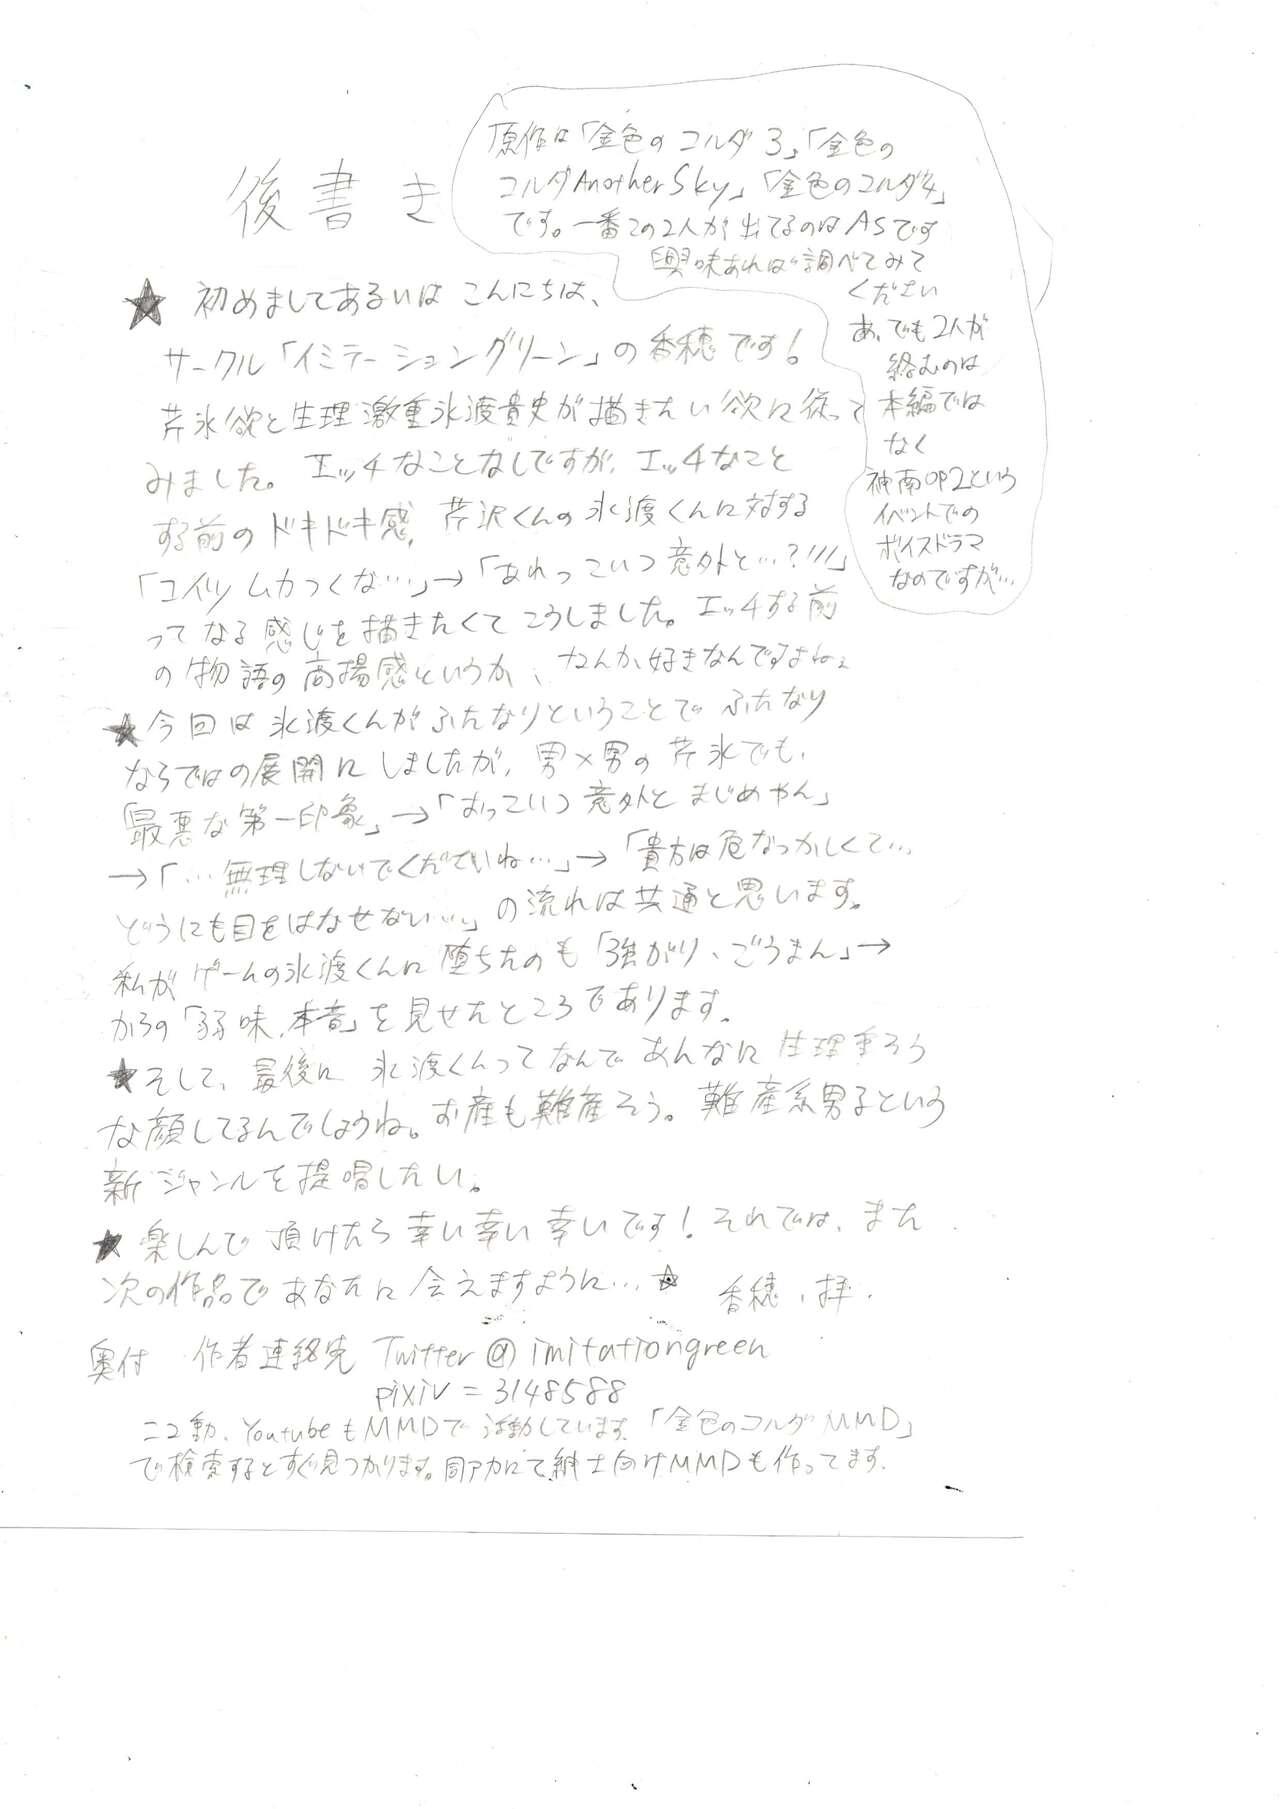 後書き
原作は「金色のコルダ3」「金色の
コルダAnotherSky」「金色のコルダ4」
です。一番この2人が出てるのはASです
興味あれば調べてみて
ください
あ、でも2人が
絡むのは
本編では
なく
神南OP2という
イベントでの
ボイスドラマ
なのですが…
★初めましてあるいはこんにちは、
サークル「イミテーショングリーン」の香穂です!
芹氷欲と生理激重氷渡貴史が描きたい欲に従って
みました。エッチなことなしですが、エッチなこと
する前のドキドキ感、芹沢くんの氷渡くんに対する
「コイツムカつくな…」→「あれっこいつ意外と…?!//」
ってなる感じを描きたくてこうしました。エッチする前
の物語の高揚感というか、なんか好きなんですよね。
★今回は氷渡くんがふたなりということでふたなり
ならではの展開にしましたが、男×男の芹氷でも、
「最悪な第一印象」→「おっこいつ意外とまじめやん」
→「…無理しないでくださいね…」→「貴方は危なっかしくて…
どうにも目をはなせない…」の流れは共通と思います。
私がゲームの氷渡くんに堕ちたのも「強がり、ごうまん」→
からの「弱味、本音」を見せたところであります。
★そして、最後に氷渡くんってなんであんなに生理重そう
な顔してるんでしょうね。お産も難産そう。難産系男子という
新ジャンルを提唱したい。
★楽しんで頂けたら幸い幸い幸いです!それでは、また
次の作品であなたに会えますように…☆ 香穂、拝.
奥付 作者連絡先 Twitter@imitationgreen
pixiv=3148588
ニコ動、YoutubeもMMDで活動しています.「金色のコルダMMD」
で検索するとすぐ見つかります。同アカにて紳士向けMMDも作ってます.